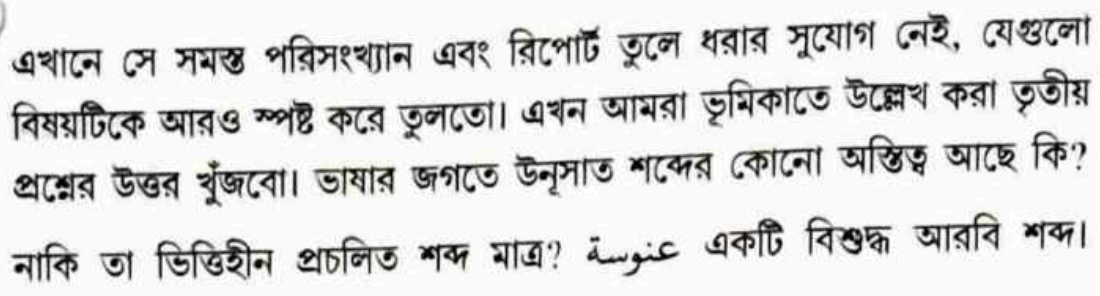 এখানে সে সমস্ত পরিসংখ্যান এবং রিপোর্ট তুলে ধরার সুযোগ নেই, যেগুলো
বিষয়টিকে আরও স্পষ্ট করে তুলতো। এখন আমরা ভূমিকাতে উল্লেখ করা তৃতীয়
প্রশ্নের উত্তর খুঁজবো। ভাষার জগতে উনূসাত শব্দের কোনো অস্তিত্ব আছে কি?
নাকি তা ভিত্তিহীন প্রচলিত শব্দ মাত্র? عنوسة একটি বিশুদ্ধ আরবি শব্দ।